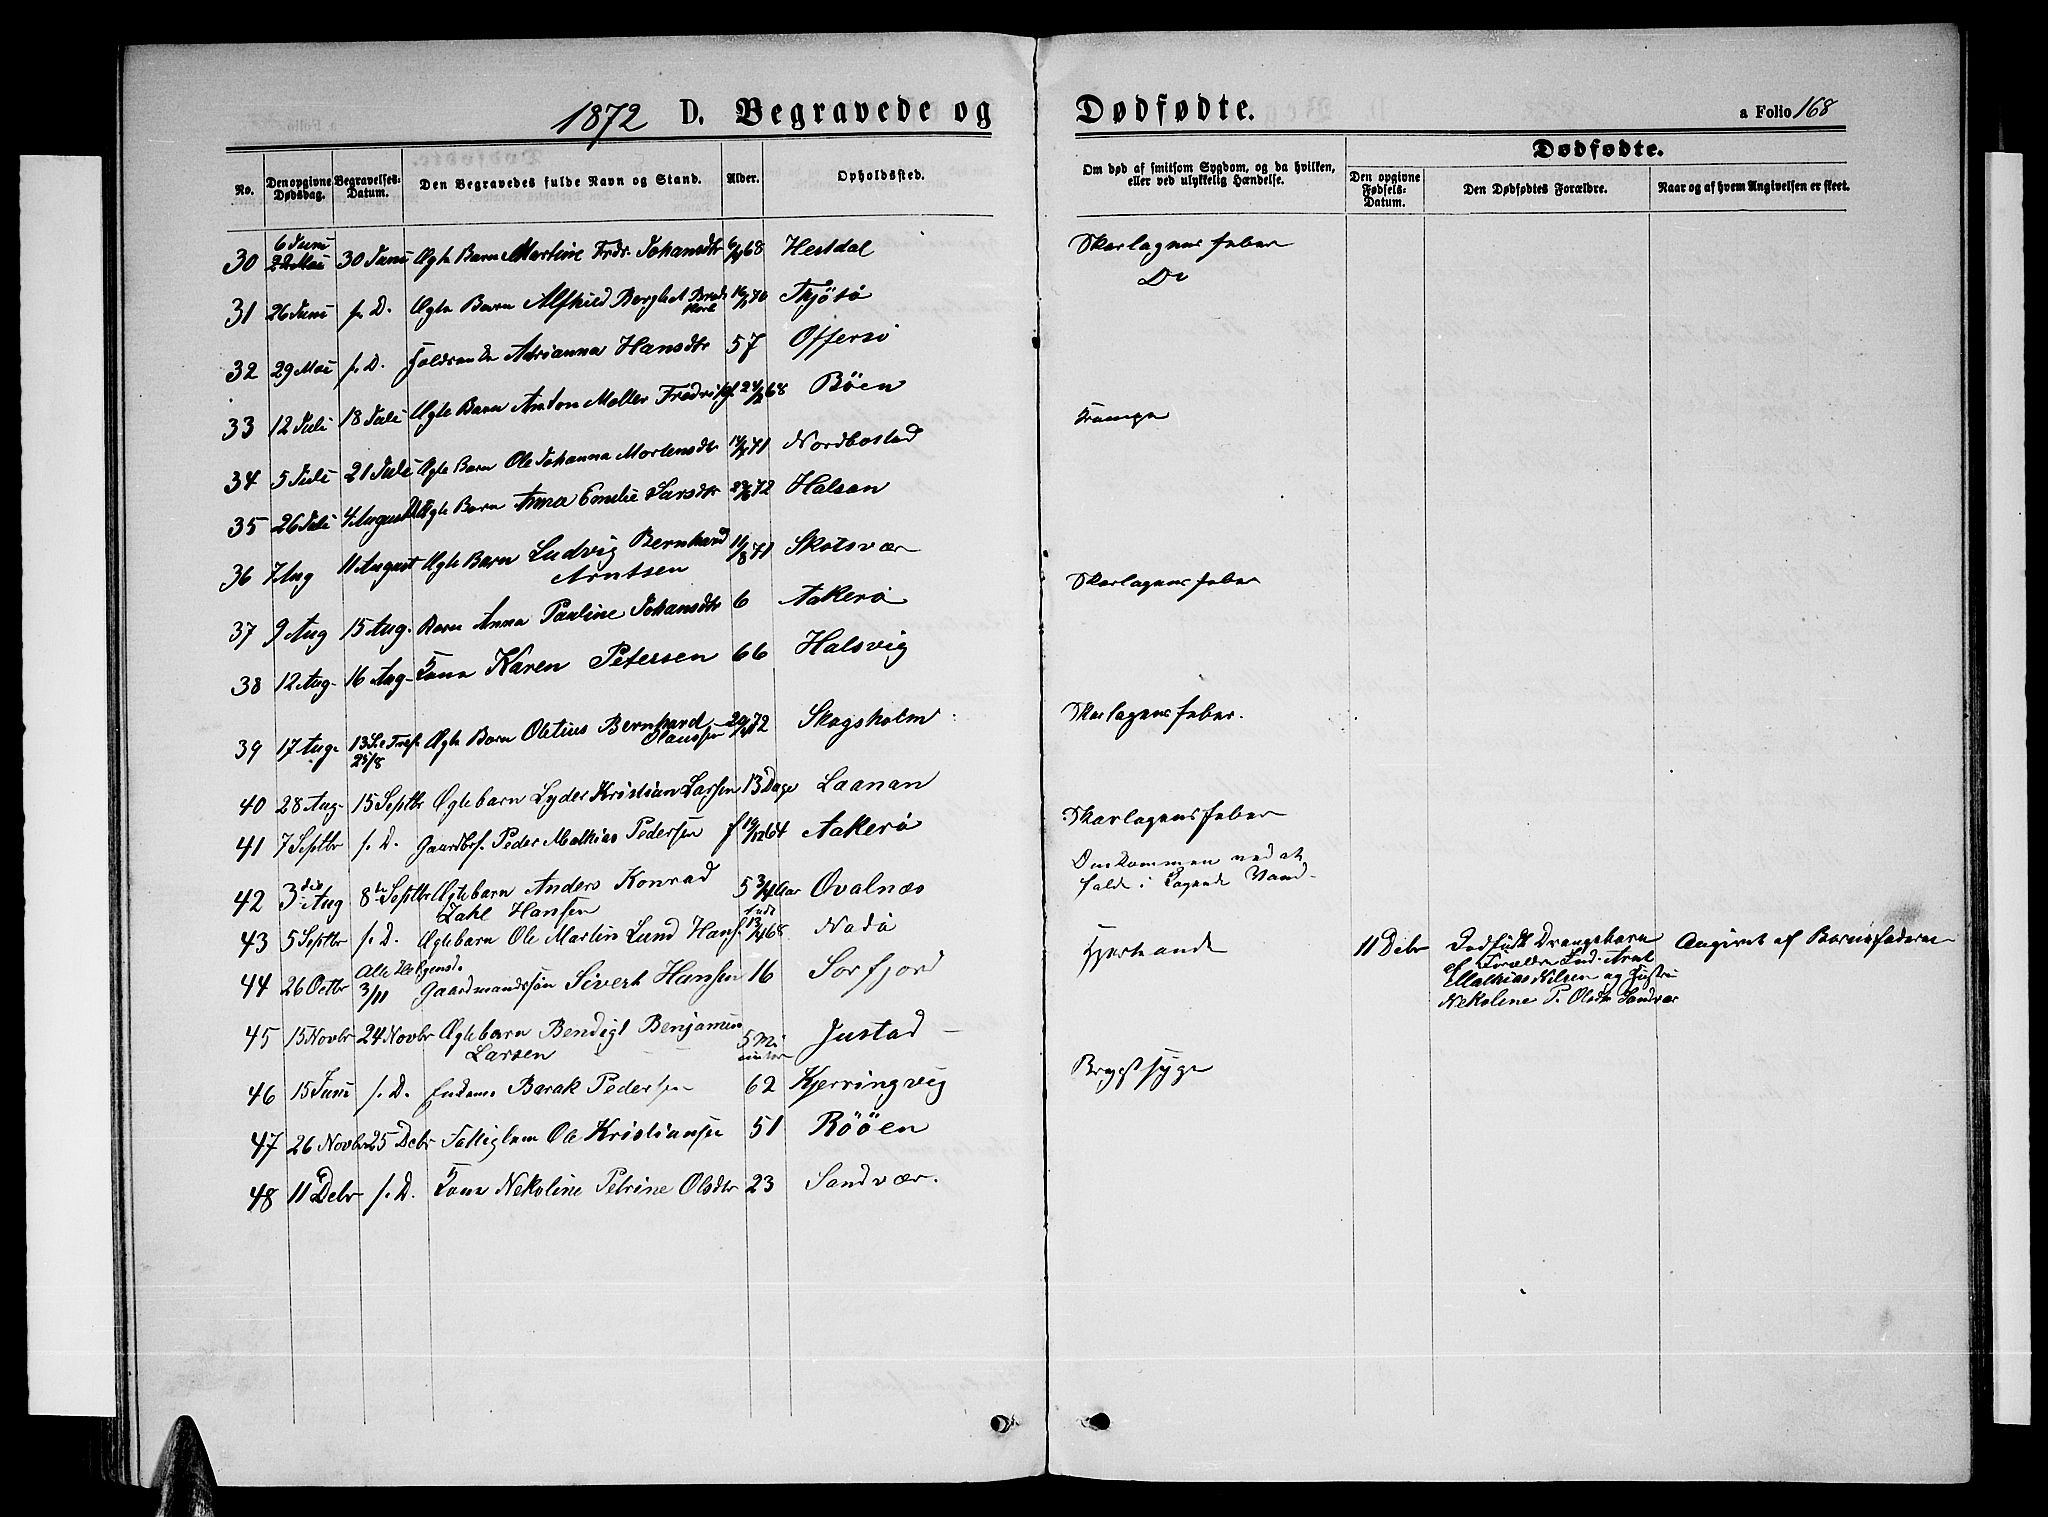 1872 D. Begravede og Dødfødte. a Folio 168
No.
Den opgivne Dødsdag.
Begravelses-Datum.
Den Begravedes fulde Navn og Stand.
Alder.
Opholdssted.
Om død af smitsom Sygdom, og da hvilken, eller ved ulykkelig Hændelse.
Dødfødte.
Den opgivne Fødsels-Datum.
Den Dødfødtes Forældre.
Naar og af hvem Angivelsen er skeet.
30 6 Juni 30 Juni Ægte Barn Martine Frdr. Johansdtr 68 Hestdal Skarlagensfeber
31 26 Juni s. D. Ægte Barn Alfhild 70 Thjötö Do
32 29 Mai s. D. Adrianna Hansdtr 57 Offersö
33 12 Juli 18 Juli Ægte Barn Anton Meller 68 Böen
34 5 Juli 21 Juli Ægte Barn Ole Johanna Mortensdtr 71 Nordbostad Krampe
35 26 Juli 4 August Ægte Barn Anna Emelie Larsdtr 72 Halsan
36 7 Aug 11 August Ægte Barn Ludvig Bernhard Arntsen 11/8 71 Skotsvær
37 9 Aug 15 Aug. Barn Anna Pauline Johansdtr 6 Aakerö Skarlagensfeber
38 12 Aug- 16 Aug- Kone Karen Petersen 66 Halsvig
39 17 Aug- 25/8 Ægte Barn Oletius Bernhard Hanssen 72 Skogsholm Skarlagensfeber.
40 28 Aug- 15 Septbr Ægtebarn Lyder Kristian Larsen 13 Dage Laanan
41 7 Septbr s. D. Gaardbrs. Peder Mathias Pedersen f 19/12 64 Aakerö Skarlagensfeber
42 3die Aug 8de Septbr Ægtebarn Anders Konrad Zahl Hansen 5 3/4 Aar Ovalnæs Omkommen ved at falde i kogende Vand-
43 5 Septbr s. D. Ægtebarn Ole Martin Lund Hans. 68 Nodö
44 26 Octbr 3/11 Gaardmandssön Sivert Hansen 16 Sorfjord
11 Debr Dødfødt Drengebarn af Forældre Ind. Arnt Mathias Nilsen og Hustru Nekoline P. Olsdtr Sandvær
Angivet af Barnefaderen
45 15 Novbr 24 Novbr Ægtebarn Bendigt Benjamin Larsen 5 Minuter Justad
46 15 Juni s. D. Barak Pedersen 62 Kjerringvig Brystsyge
47 26 Novbr 25 Debr Fattiglem Ole Kristiansen 51 Röðen
48 11 Debr s. D. Kone Nekoline Petrine Olsdtr 23 Sandvær.